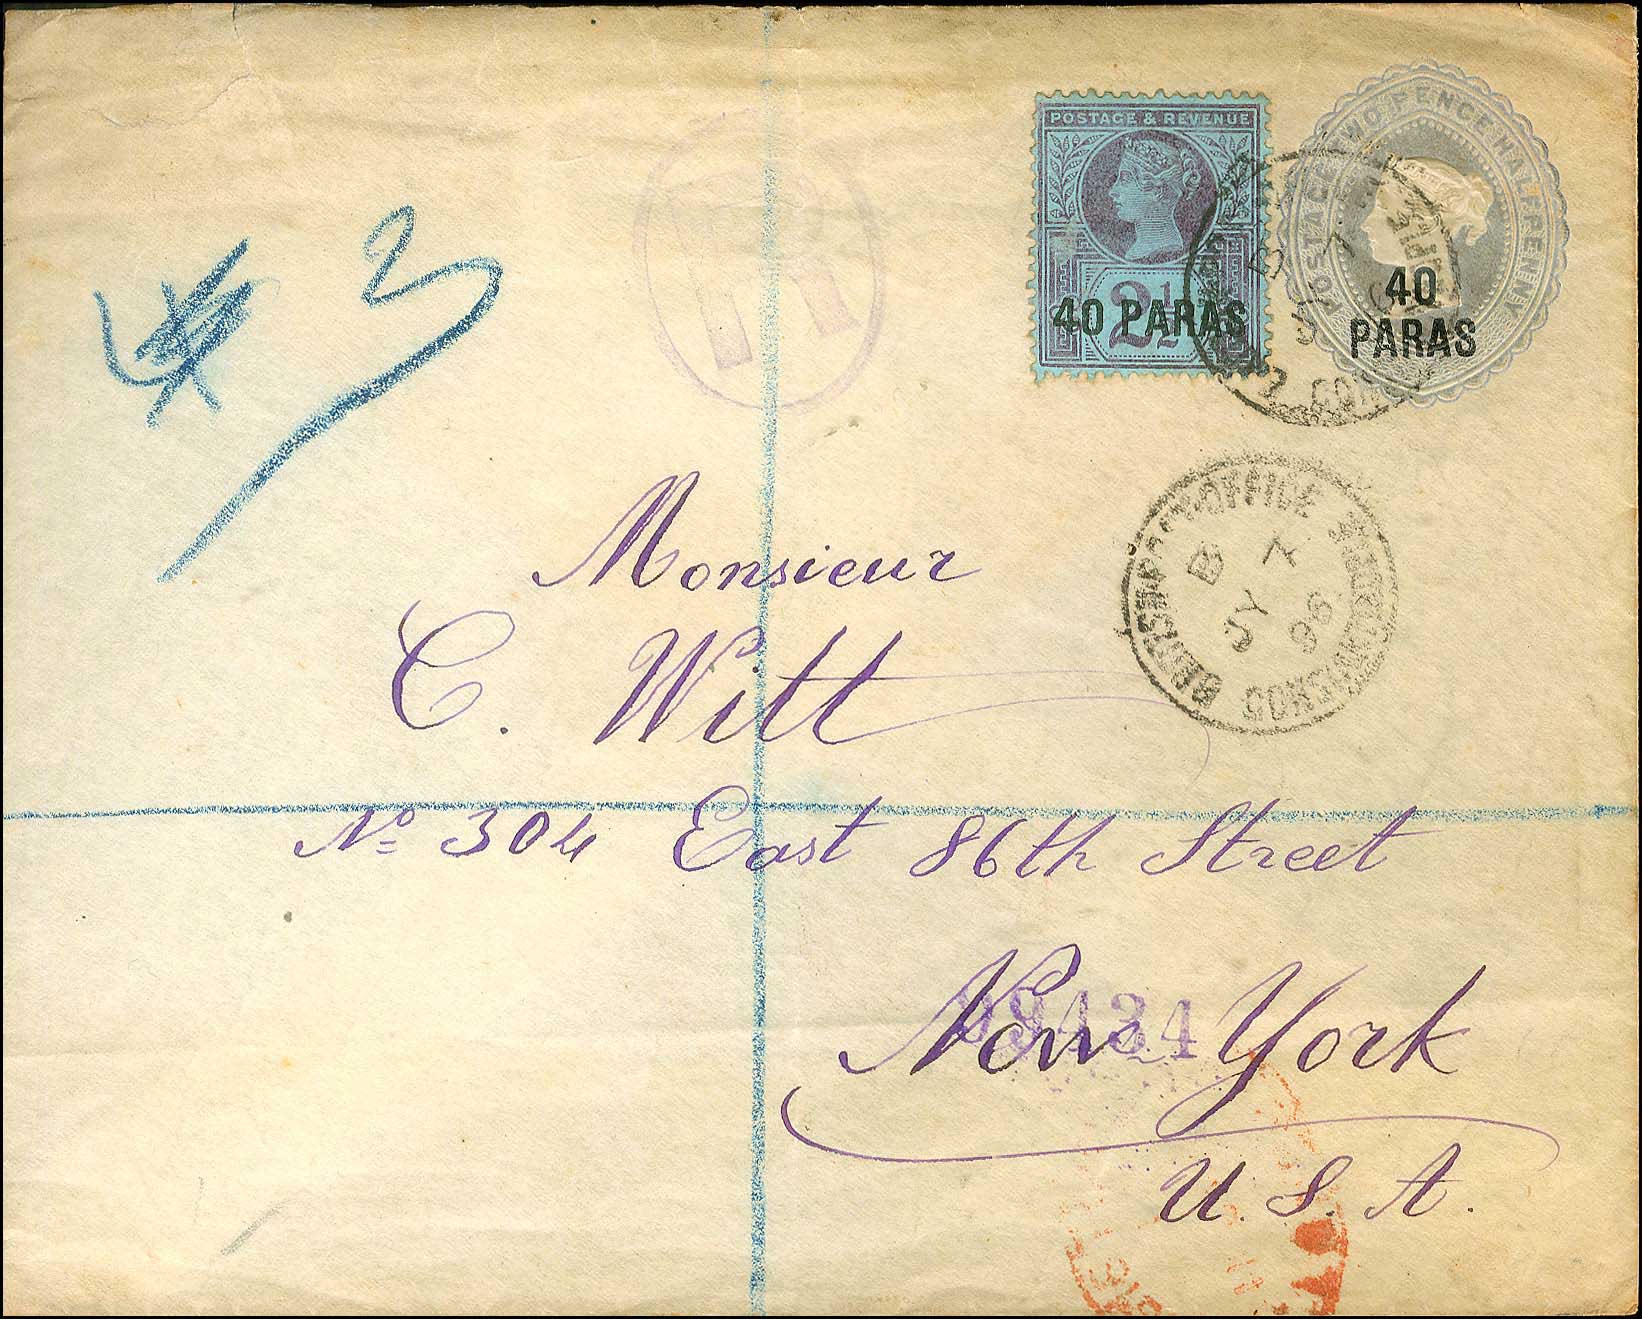 POSTAGE & REVENUE
2½
40 PARAS
POSTAGE TWO PENCE HALFPENNY
40
PARAS
R
2
BRITISH POST OFFICE
B 7
JY
96
Monsieur
C. Witt
No 304 East 86th Street
New York
U. S. A.
99434